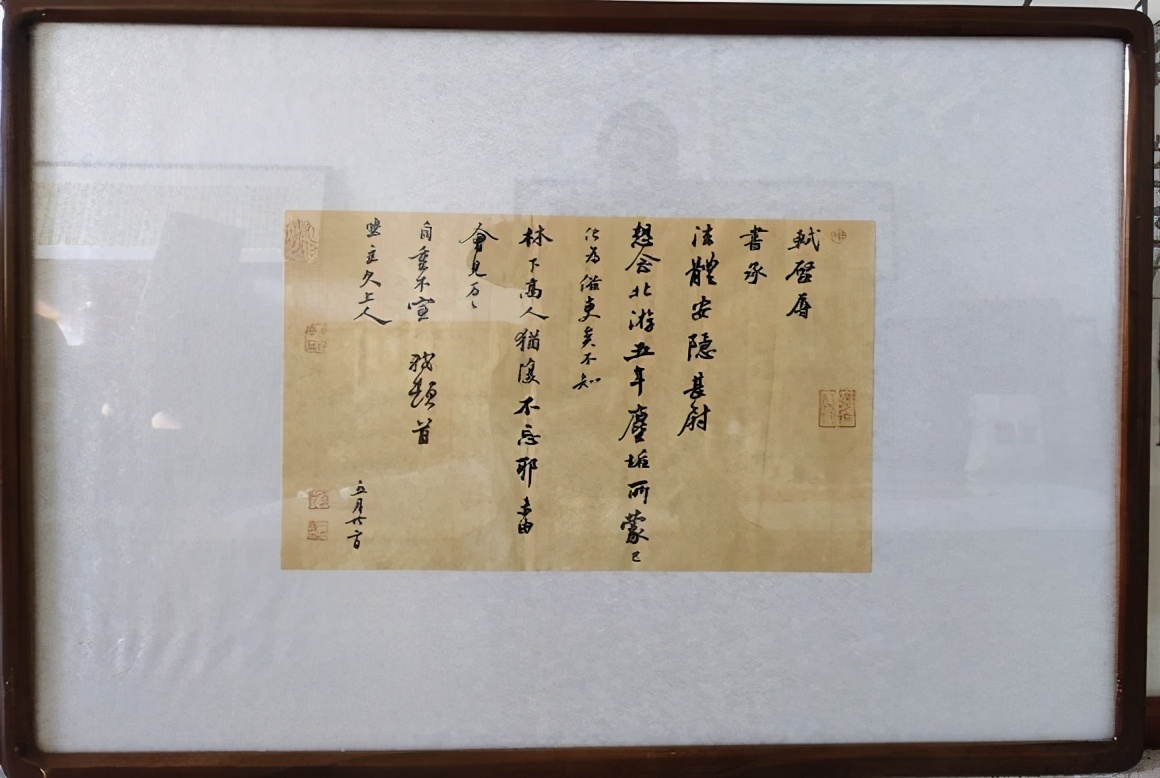 軾啓辱
書承
法體安隱甚尉
想念北游五年塵垢所蒙已
化為俗吏矣不知
林下高人猶復不忘耶未由
會見万々
自重不宣 軾頓首
坐主久上人
五月廿二日